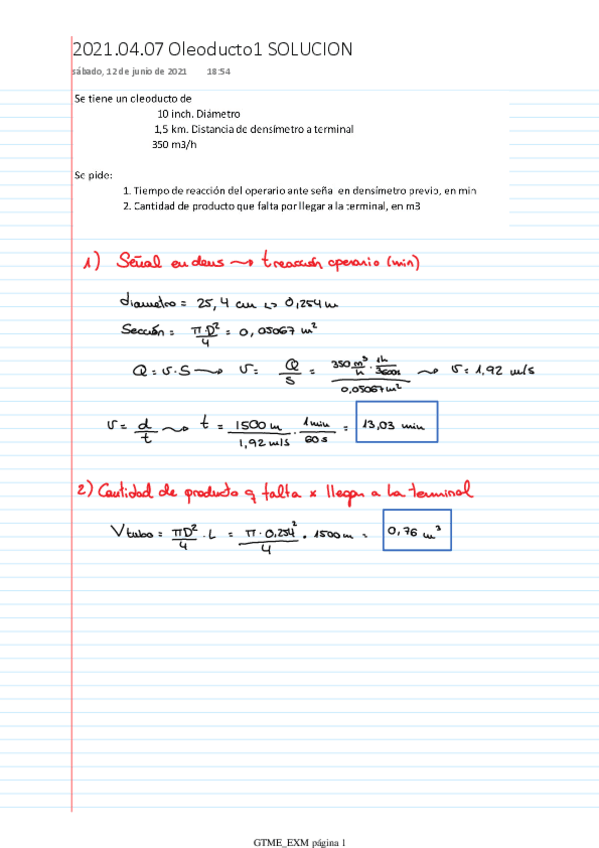 2021.04.07 Oleoducto1 SOLUCION
sábado, 12 de junio de 2021 18:54
Se tiene un oleoducto de
10 inch. Diámetro
1,5 km. Distancia de densímetro a terminal
350 m3/h
Se pide:
1. Tiempo de reacción del operario ante seña en densímetro previo, en min
2. Cantidad de producto que falta por llegar a la terminal, en m3
1) Señal en dens → t reacción operario (min)
diametro = 25,4 cm ↔ 0,254 m
Sección = πD²/4 = 0,05067 m²
Q = v·S → v = Q/S = (350 m³/h · 1h/3600s)/(0,05067 m²) → v = 1,92 m/s
v = d/t → t = 1500 m/1,92 m/s · 1 min/60 s = 13,03 min
2) Cantidad de producto q falta x llegar a la terminal
V tubo = πD²/4 · L = π · 0,254²/4 · 1500 m = 0,76 m³
GTME_EXM página 1